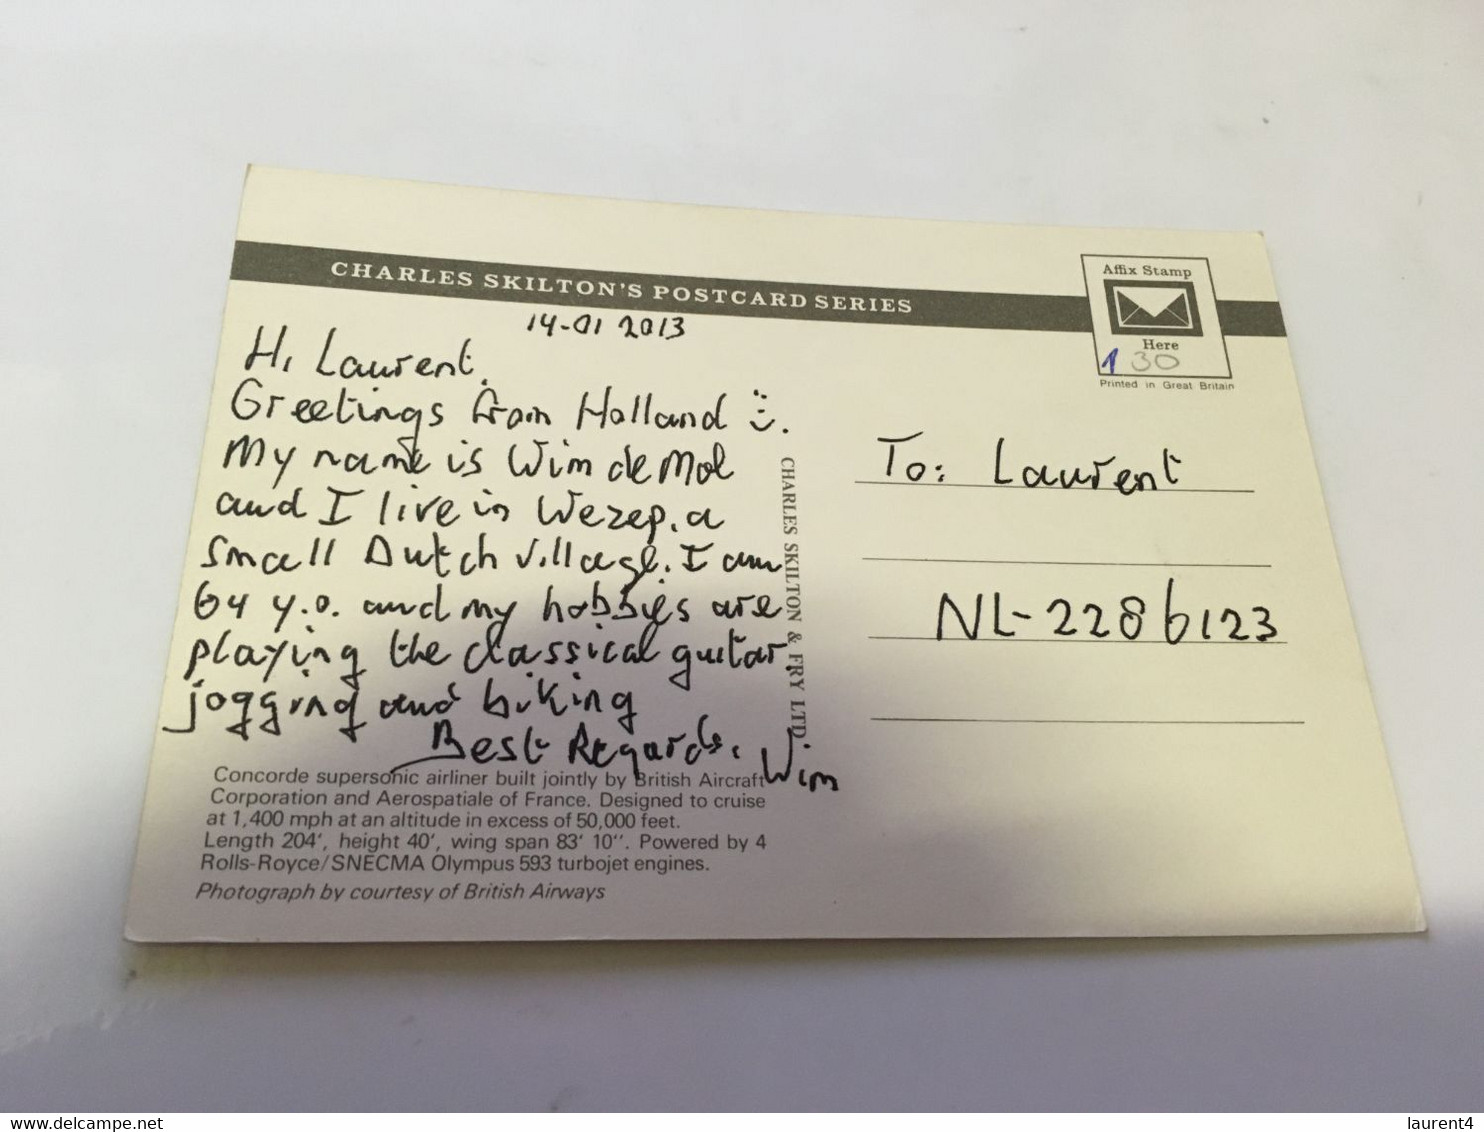 CHARLES SKILTON'S POSTCARD SERIES
Affix Stamp
Here
1 30
Printed in Great Britain
14-01 2013
Hi Laurent,
Greetings from Holland :).
My name is Wim de Mol
and I live in Wezep, a
small Dutch village. I am
64 y.o. and my hobbies are
playing the classical guitar,
jogging and biking
Best Regards, Wim
CHARLES SKILTON & FRY LTD.
To: Laurent
NL-2286123
Concorde supersonic airliner built jointly by British Aircraft
Corporation and Aerospatiale of France. Designed to cruise
at 1,400 mph at an altitude in excess of 50,000 feet.
Length 204', height 40', wing span 83' 10''. Powered by 4
Rolls-Royce/SNECMA Olympus 593 turbojet engines.
Photograph by courtesy of British Airways
delcampe.net
laurent4